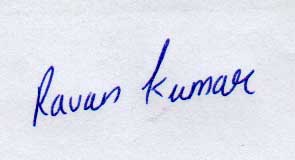 Ravan Kumar